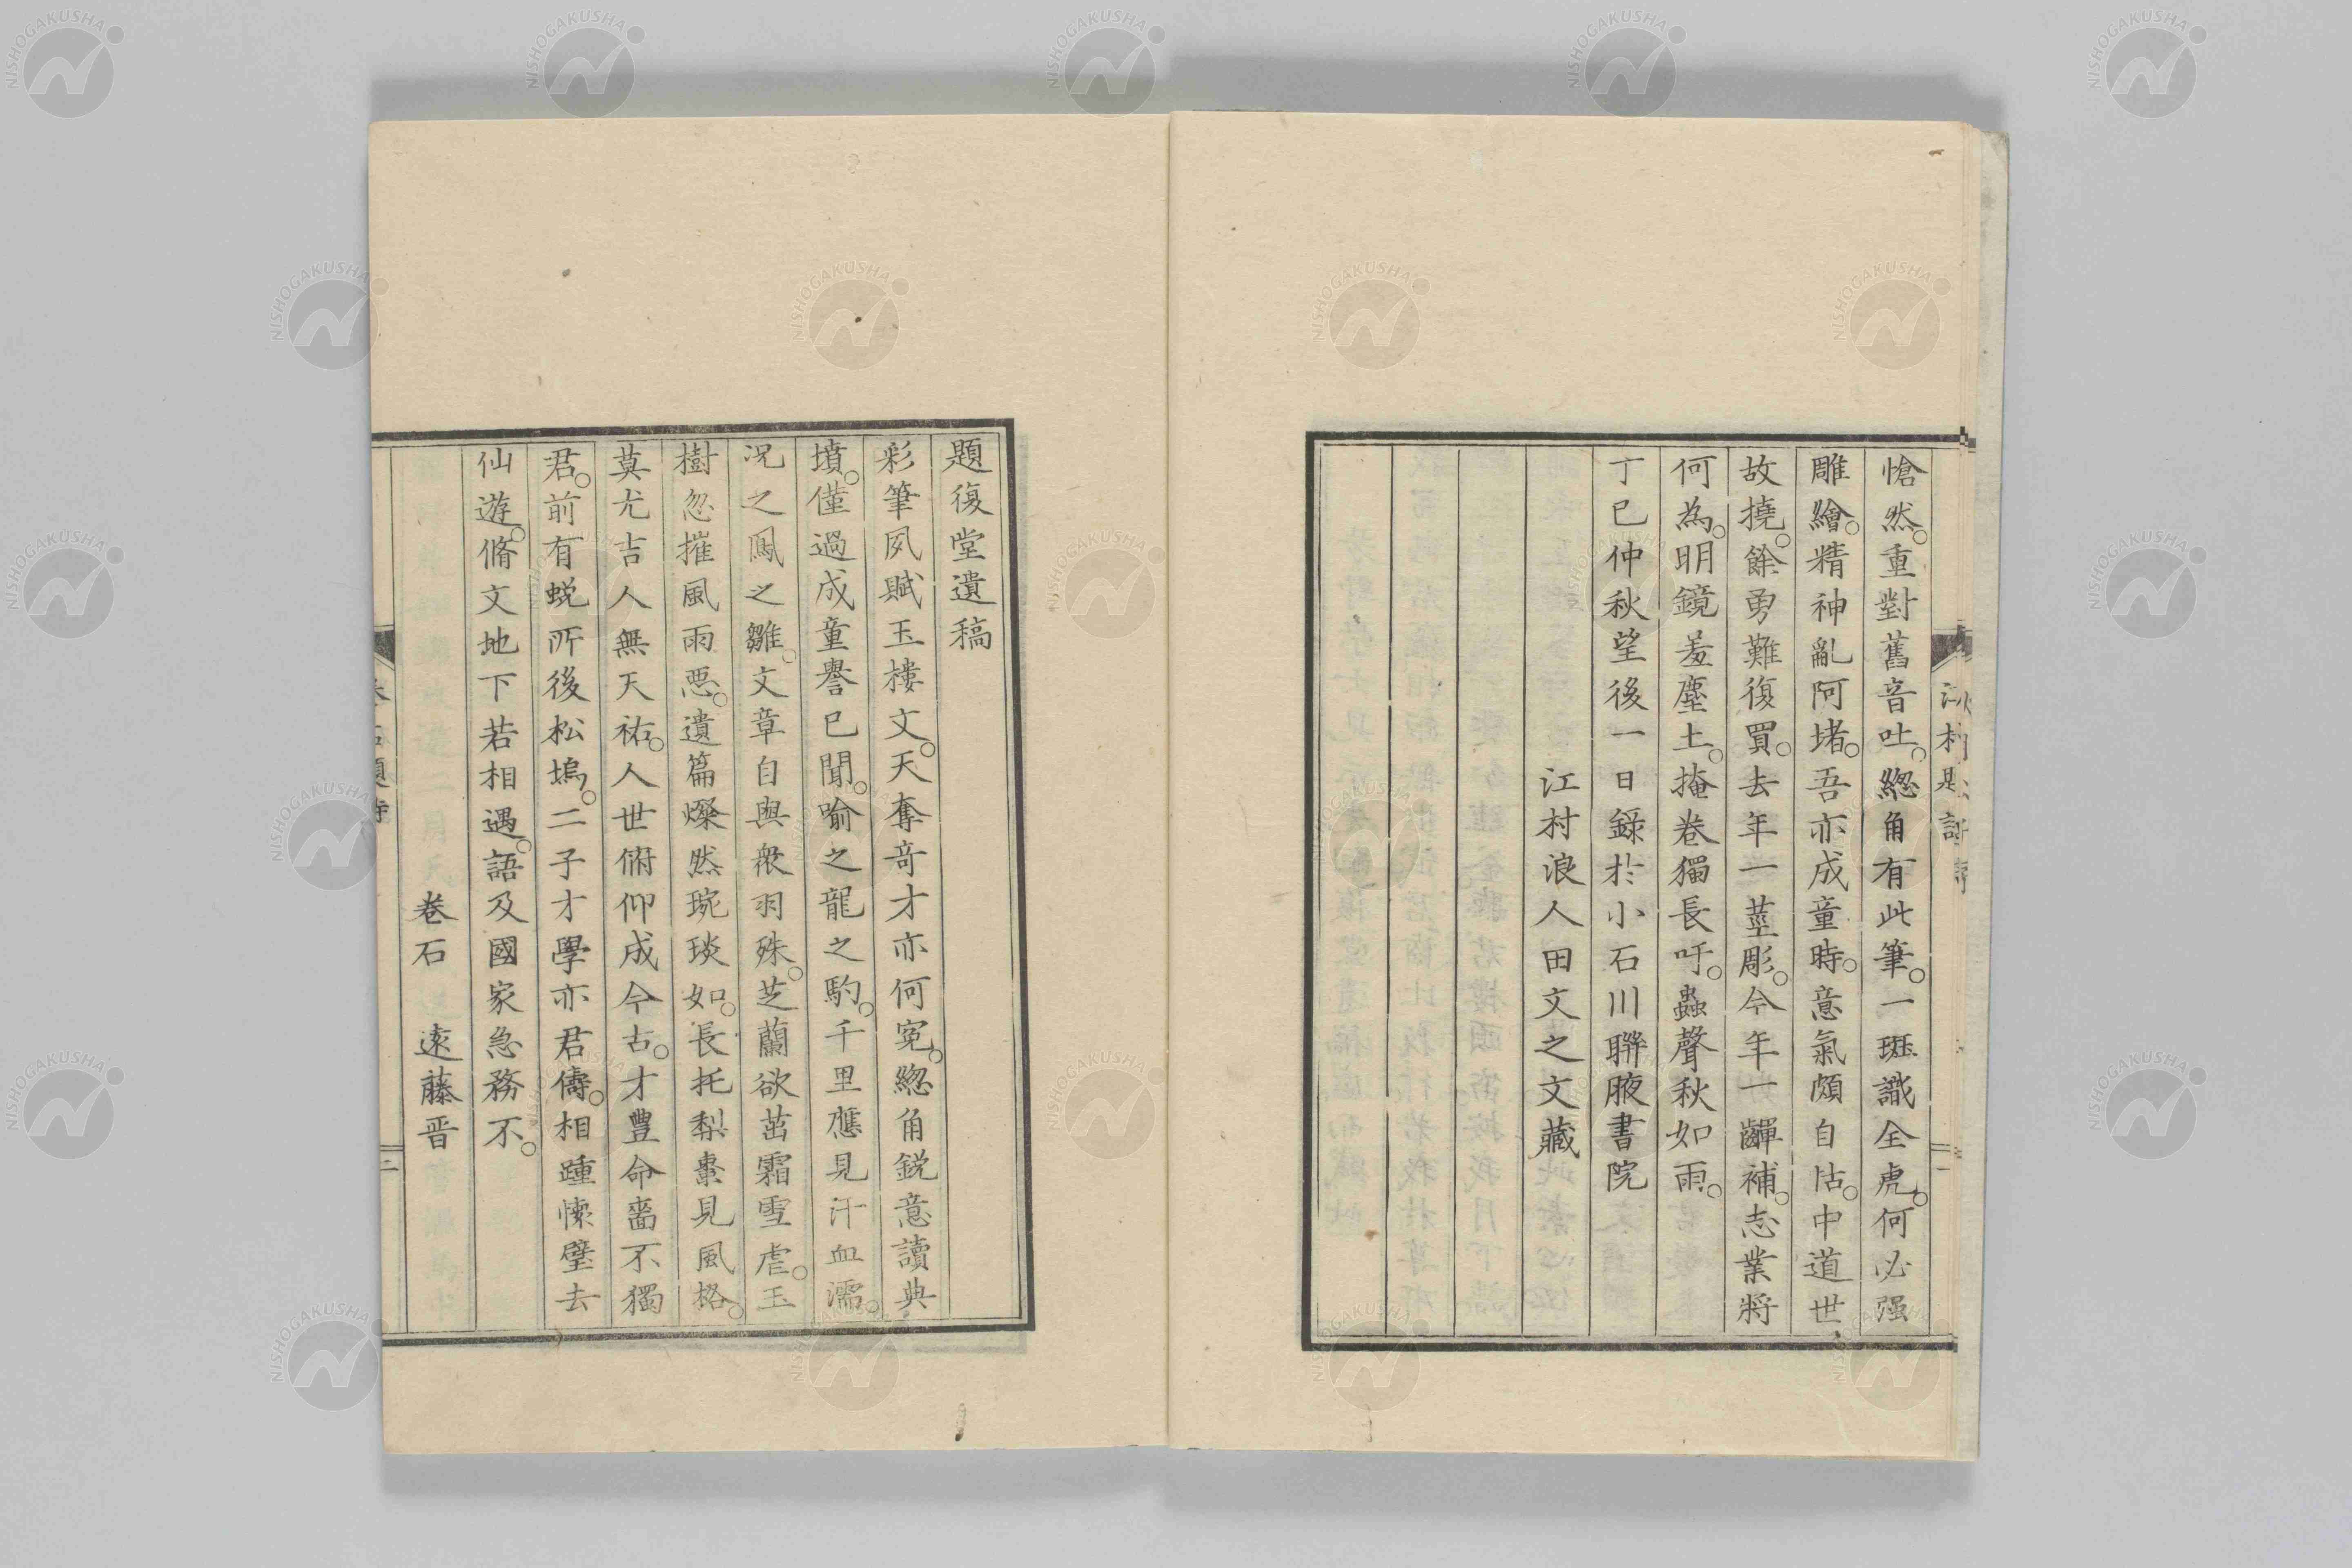 愴然。重對舊音吐。緫角有此筆。一斑識全虎。何必强
雕繪。精神亂阿堵。吾亦成童時。意氣頗自怙。中道世
故撓。餘勇難復買。去年一莖彫。今年一齲補。志業將
何為。明鏡羞塵土。掩卷獨長吁。蟲聲秋如雨。
丁巳仲秋望後一日錄於小石川聯腋書院
江村浪人田文之文藏
題復堂遺稿
彩筆夙賦玉樓文。天奪奇才亦何寃。緫角鋭意讀典
墳。僅過成童譽已聞。喻之龍之駒。千里應見汗血濡。
况之鳳之雛。文章自與衆羽殊。芝蘭欲茁霜雪虐。玉
樹忽摧風雨悪。遺篇燦然琬琰如。長托梨棗見風格。
莫尤吉人無天祐。人世俯仰成今古。才豐命嗇不獨
君。前有蜕所後松塢。二子才學亦君儔。相踵懷璧去
仙遊。脩文地下若相遇。語及國家急務不。
卷石　遠藤晋
NISHOGAKUSHA